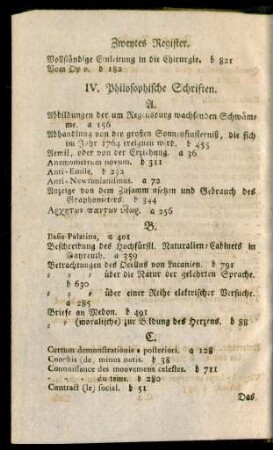 Zweytes Register.
Vollständige Einleitung in die Chirurgie. b 821
Vom Opo. b 182
IV. Philosophische Schriften.
A.
Abbildungen der um Regensburg wachsenden Schwäm-
me. a 156
Abhandlung von der großen Sonnenfinsterniß, die sich
im Jahr 1764 ereignen wird. b 455
Aemil, oder von der Erziehung. a 36
Anemometrum novum. b 311
Anti-Emile. b 232
Anti-Newtonianismus. a 72
Anzeige von dem Zusammensetzen und Gebrauch des
Graphometers. b 344
a 256
B.
Basis Palatina, a 401
Beschreibung des Hochfürstl. Naturalien-Cabinets in
Bayreuth. a 359
Betrachtungen des Ocellus von Lucanien. b 791
= = über die Natur der gelehrten Sprache.
b 630
= = über einer Reihe elektrischer Versuche.
a 285
Briefe an Medon. b 491
= = (moralische) zur Bildung des Herzens. b 88
C.
Certum demonstrationis a posteriori. a 128
de, minus notis. b 38
Connoissance des mouvemens celestes. b 711
- - du tems. b 280
Contract (le) social. b 51
Das